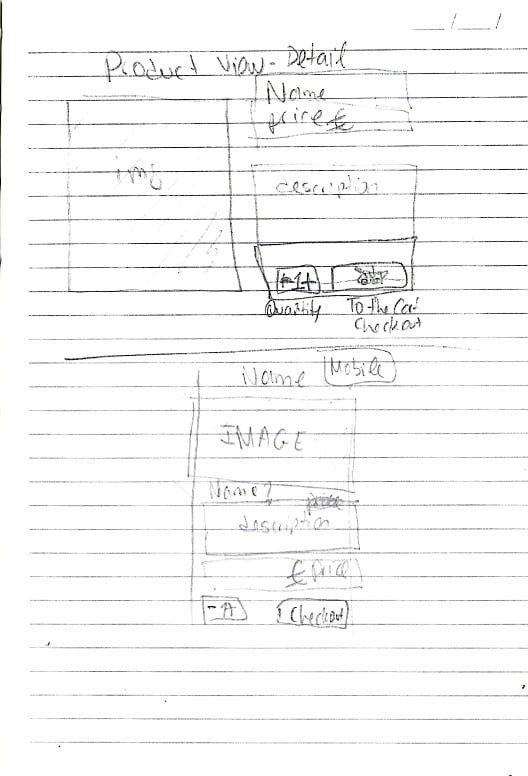 Product View - Detail
Name
price £
img
description
-1+
Quantity
To the Cart
Checkout
Name
Mobile
IMAGE
Name?
description
£ price
Checkout